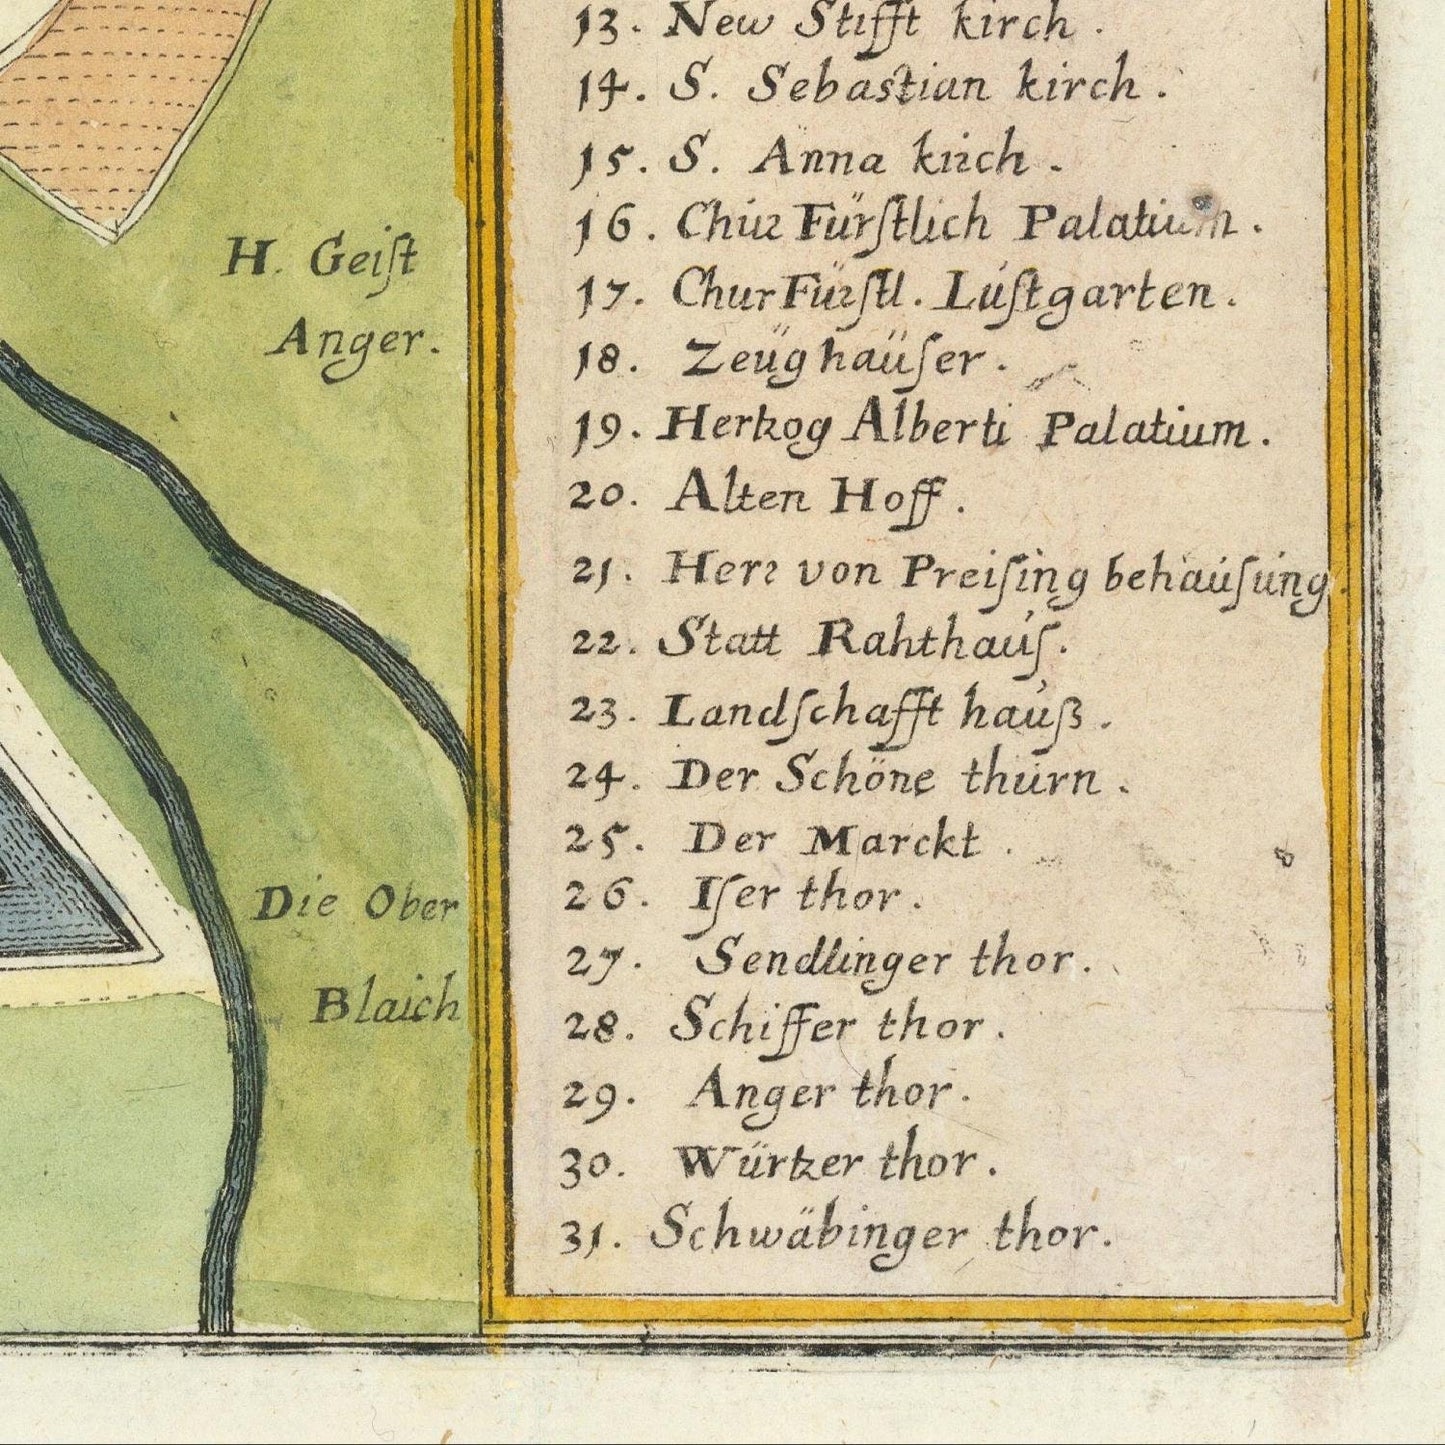 13. New Stifft kirch.
14. S. Sebastian kirch.
15. S. Anna kirch.
16. Chur Fürſtlich Palatium.
17. ChurFürſtl. Luſtgarten.
18. Zeüg haüſer.
19. Hertzog Alberti Palatium.
20. Alten Hoff.
21. Herr von Preiſing behauſung.
22. Statt Rahthauſ.
23. Landſchafft hauß.
24. Der Schöne thurn.
25. Der Marckt.
26. Iſer thor.
27. Sendlinger thor.
28. Schiffer thor.
29. Anger thor.
30. Würtzer thor.
31. Schwäbinger thor.
H. Geiſt
Anger.
Die Ober
Blaich